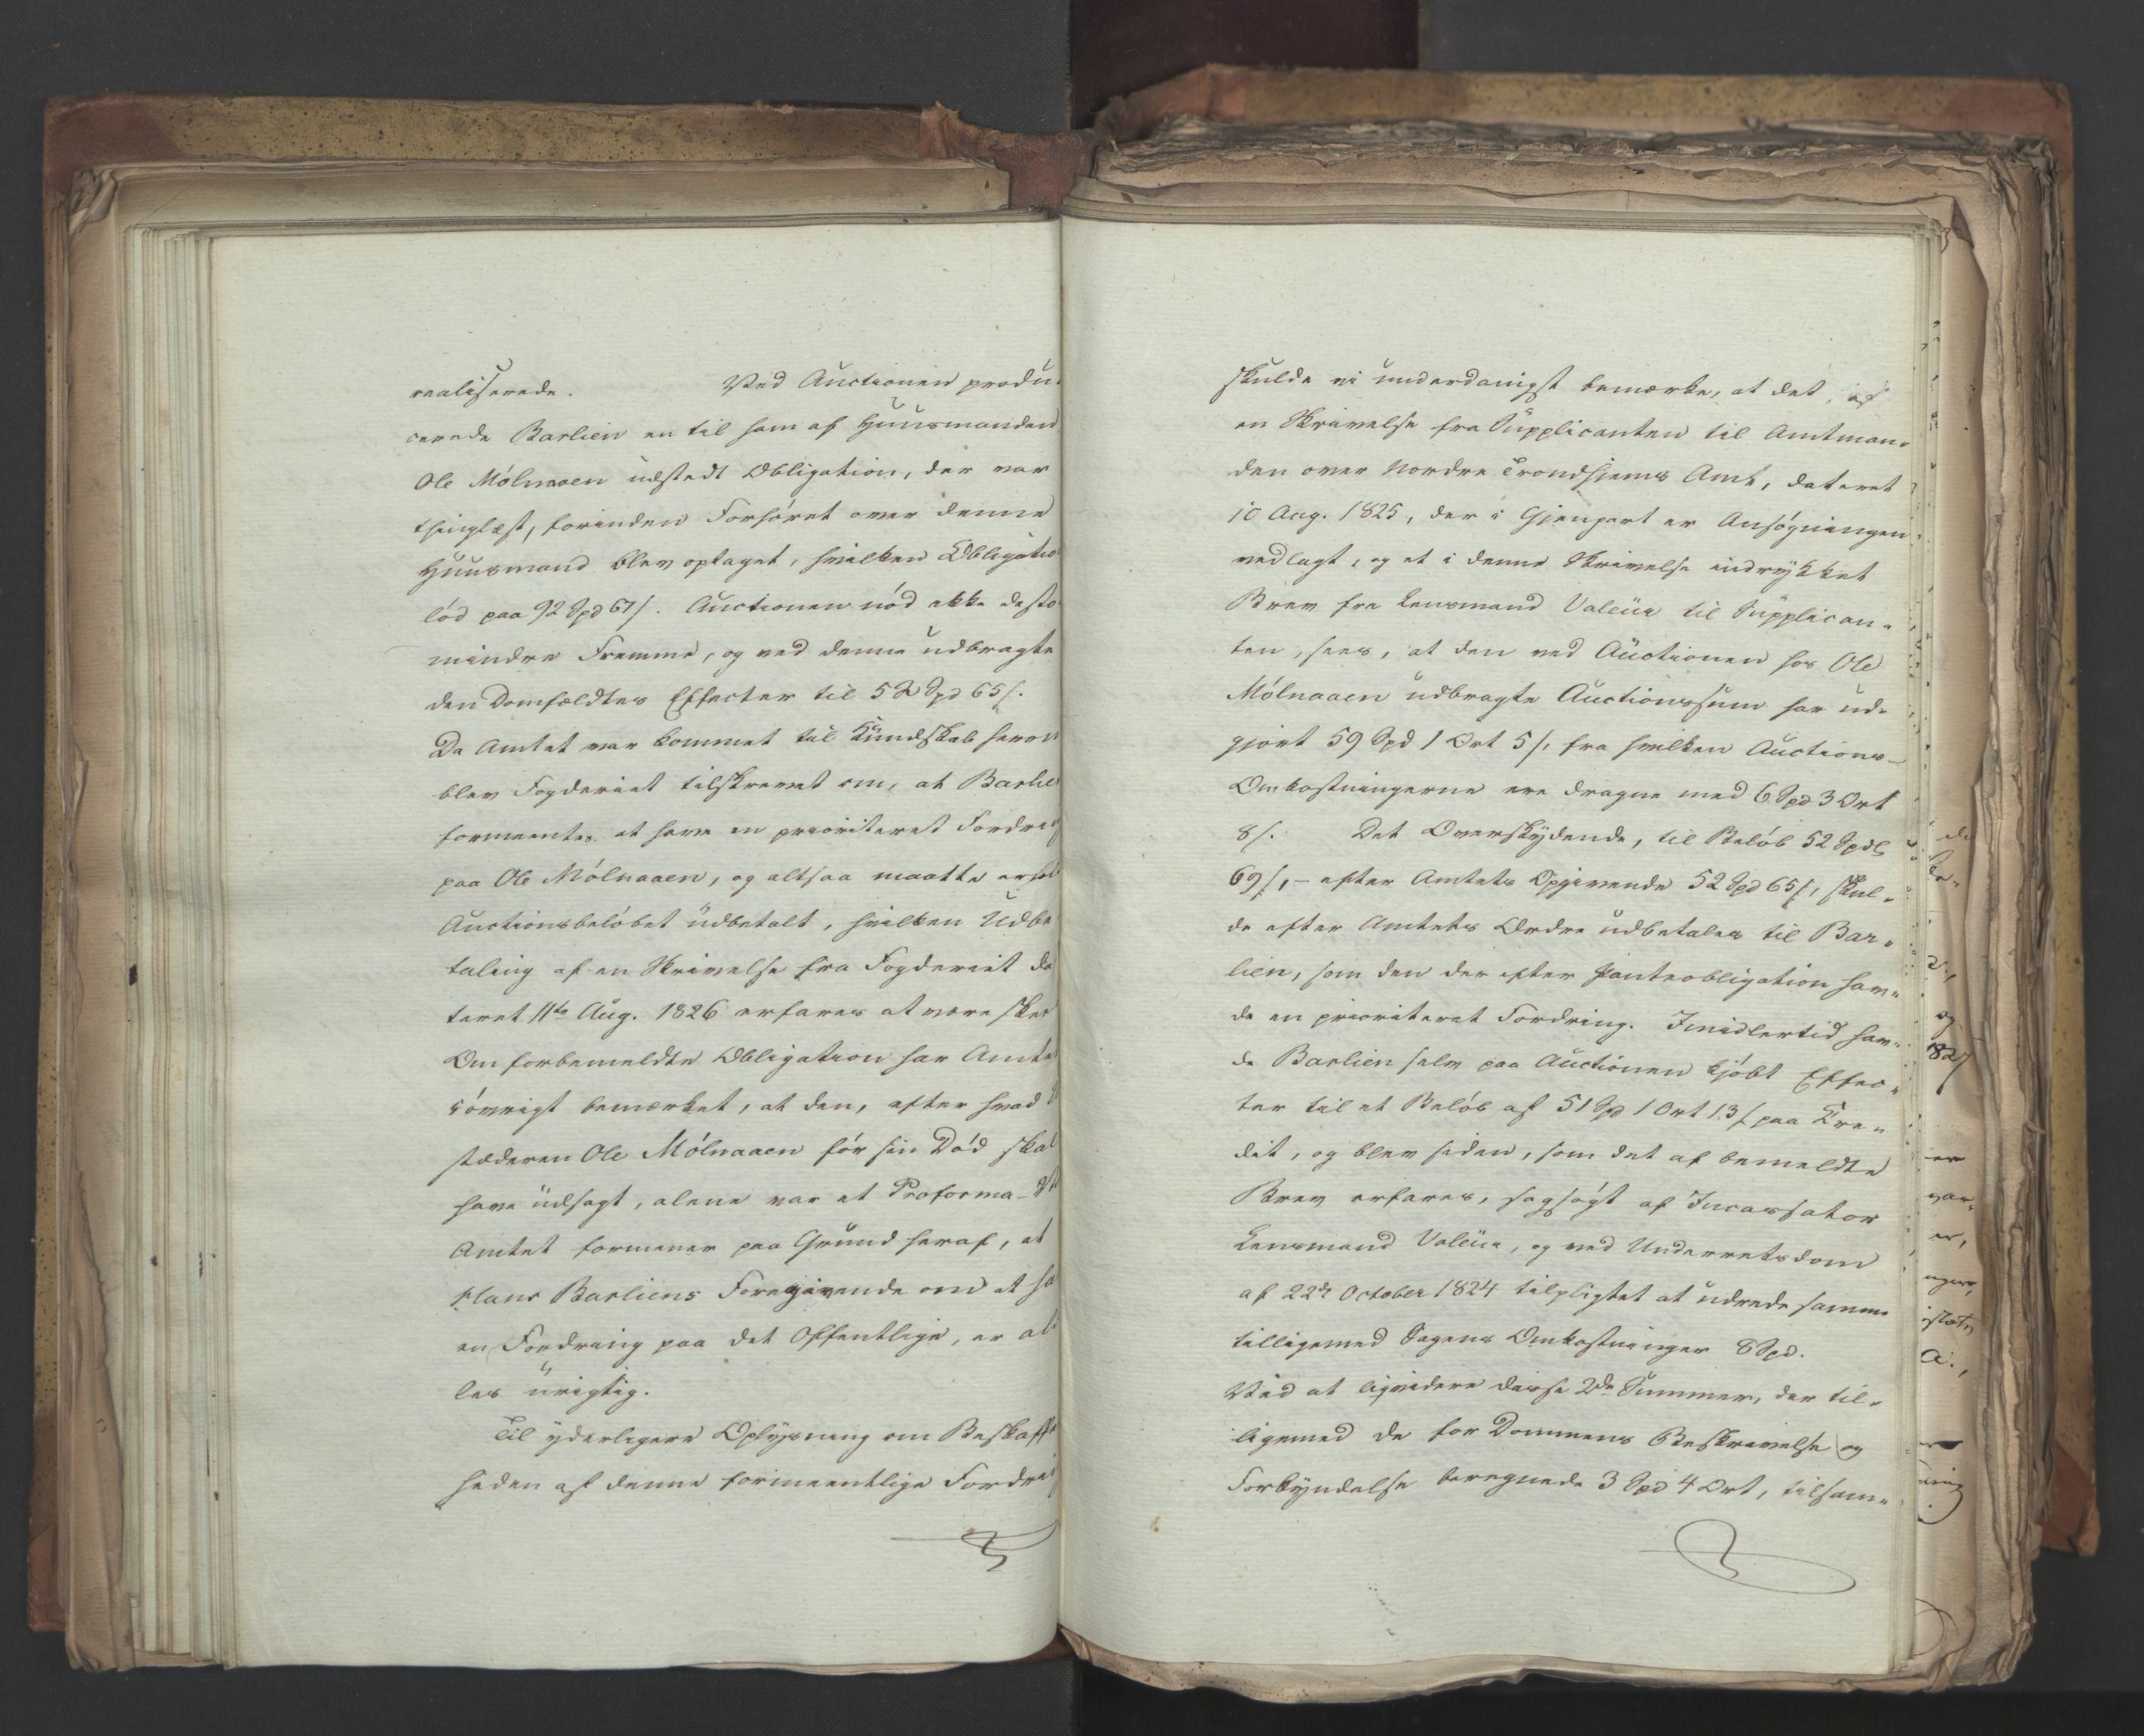 realiserede. Ved Auctionen produ-
cerede Barlien en til ham af Huusmanden
Ole Mólnaaen udstedt Obligation, der var
thinglæst, forinden Forhóret over denne
Huusmand blev optaget, hvilken Obligatio
lód paa 92 Spd 67 s. Auctionen nód ikke desto
mindre Fremme, og ved denne udbragte
den Domfældtes Effecter til 52 Spd 65 s.
Da Amtet var kommet til Kundskab herom
blev Fogderiet tilskrevet om, at Barlie
formeentes at have en prioriteret Fordrin
paa Ole Mólnaaen, og altsaa maatte erhol
Auctionsbelóbet udbetalt, hvilken Udbe
taling af en Skrivelse fra Fogderiet da
teret 11te Aug. 1826 erfares at være skeet
Om forbemeldte Obligation har Amtet
ióvrigt bemærket, at den, efter hvad
stederen Ole Mólnaaen fór sin Dód skal
have udsagt, alene var et Proforma-
Amtet formener paa Grund heraf, at
Hans Barliens Foregivende om at ha
en Fordring paa det Offentlige, er al
les urigtig.
Til yderligere Oplysning om Beskaffen
heden af denne formeentlige Fordrin
skulde vi underdanigst bemærke, at det, af
en Skrivelse fra Supplicanten til Amtman-
den over Nordre Trondhjems Amt, dateret
10 Aug. 1825, der i Gjenpart er Ansógningen
vedlagt, og et i denne Skrivelse indrykket
Brev fra Lensmand Valeur til Supplican-
ten, sees, at den ved Auctionen hos Ole
Mólnaaen udbragte Auctionssum har ud-
gjort 59 Spd 1 Ort 5 s, fra hvilken Auctions-
Omkostningerne ere dragne med 6 Spd 3 Ort
8 s. Det Overskydende, til Belób 52 Spd
69 s, - efter Amtets Opgivende 52 Spd 65 s, skul-
de efter Amtets Ordre udbetales til Bar-
lien, som den der efter Panteobligation hav-
de en prioriteret Fordring. Imidlertid hav-
de Barlien selv paa Auctionen kjóbt Effec-
ter til et Belób af 51 Spd 1 Ort 13 s paa Kre-
dit, og blev siden, som det af bemeldte
Brev erfares, sagsógt af Incassator
Lensmand Valeur, og ved Underretsdom
af 22de October 1824 tilpligtet at udrede samme
tilligemed Sagens Omkostninger 8 Spd.
Ved at liqvidere disse 2de Summer, der til-
ligemed de for Dommens Beskrivelse og
Forkyndelse beregnede 3 Spd 4 Ort, tilsam-